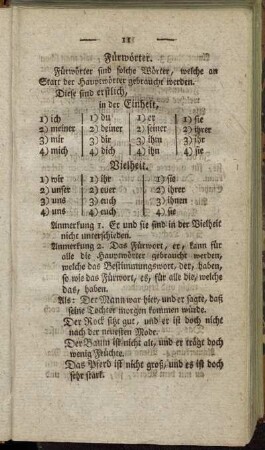 11
Fürwörter.
Fürwörter sind solche Wörter, welche an
Statt der Hauptwörter gebraucht werden.
Diese sind erstlich,
in der Einheit,
1) ich | 1) du | 1) er | 1) sie
2) meiner | 2) deiner | 2) seiner | 2) ihrer
3) mir | 3) dir | 3) ihm | 3) ihr
4) mich | 4) dich | 4) ihn | 4) sie
Vielheit.
1) wir | 1) ihr | 1) sie
2) unser | 2) euer | 2) ihrer
3) uns | 3) euch | 3) ihnen
4) uns | 4) euch | 4) sie
Anmerkung 1. Er und sie sind in der Vielheit
nicht unterschieden.
Anmerkung 2. Das Fürwort, er, kann für
alle die Hauptwörter gebraucht werden,
welche das Bestimmungswort, der, haben,
so wie das Fürwort, es, für alle die, welche
das, haben.
Als: Der Mann war hier, und er sagte, daß
seine Tochter morgen kommen würde.
Der Rock sitzt gut, und er ist doch nicht
nach der neuesten Mode.
Der Baum ist nicht alt, und er trägt doch
wenig Früchte.
Das Pferd ist nicht groß, und es ist doch
sehr stark.